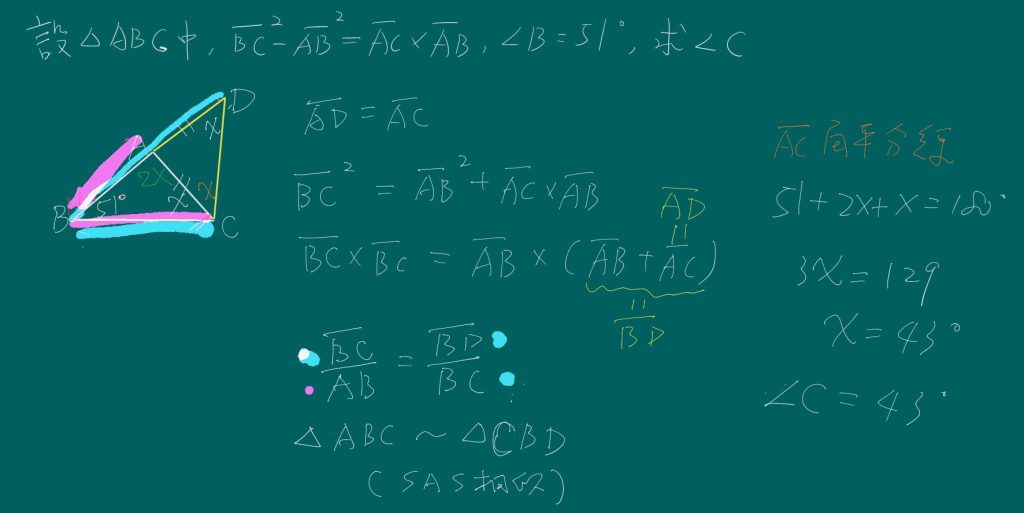 設△ABC中, BC²-AB²=AC×AB, ∠B=51°, 求∠C
D
A
B
C
x
x
x
2x
51°
AD = AC
BC² = AB² + AC×AB
BC×BC = AB × (AB + AC)
AD
||
||
BD
BC/AB = BD/BC
△ABC ~ △CBD
(SAS相似)
AC角平分線
51+2x+x=180°
3x=129
x=43°
∠C=43°